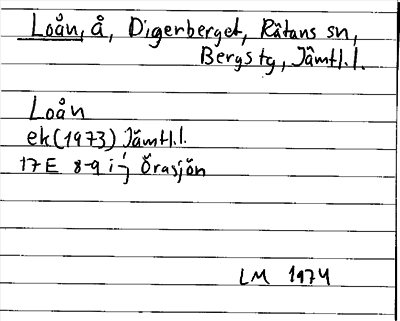 Loån, å, Digerberget, Råtans sn,
Bergs tg, Jämtl.l.
Loån
ek (1973) Jämtl.l.
17E 8-9 i-j Örasjön
LM 1974